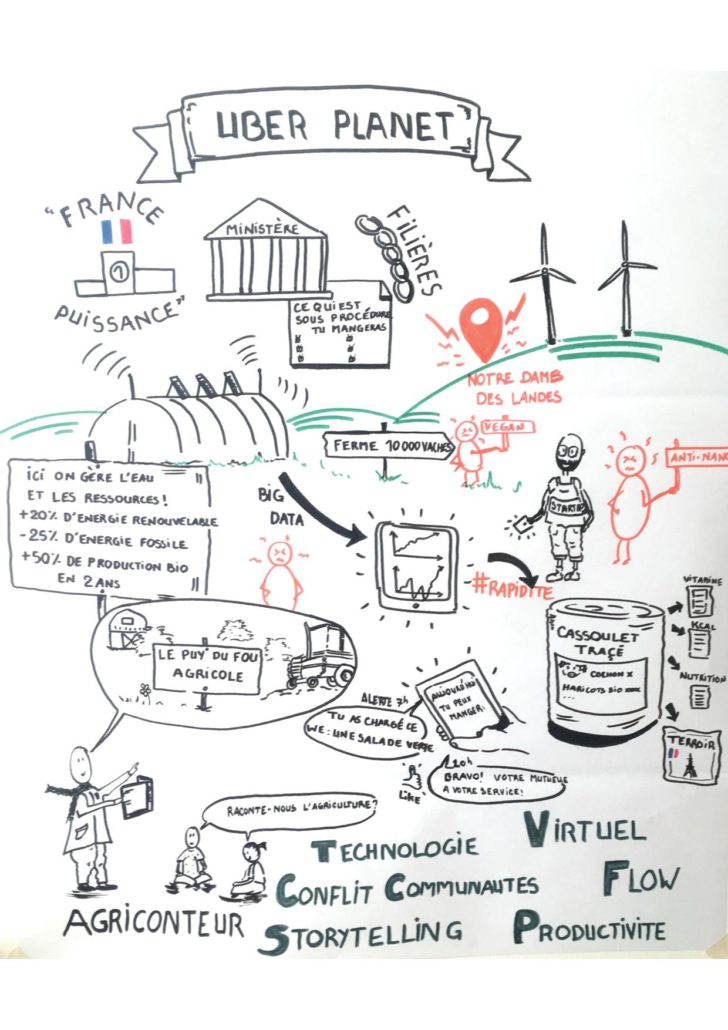 UBER PLANET
"FRANCE
1
PUISSANCE"
MINISTÈRE
FILIÈRES
CE QUI EST
SOUS PROCÉDURE
TU MANGERAS
NOTRE DAME
DES LANDES
FERME 10 000 VACHES
VEGAN
ANTI-NANO
STARTUP
ICI ON GÈRE L'EAU
ET LES RESSOURCES!
+20% D'ENERGIE RENOUVELABLE
-25% D'ÉNERGIE FOSSILE
+50% DE PRODUCTION BIO
EN 2 ANS
BIG
DATA
#RAPIDITE
LE PUY DU FOU
AGRICOLE
CASSOULET
TRAÇÉ
COCHON X
HARICOTS BIO
VITAMINE
KCAL
NUTRITION
TERROIR
ALERTE 7h
TU AS CHARGÉ CE
WE: UNE SALADE VERTE
AUJOURD'HUI
TU PEUX
MANGER:
20h
BRAVO! VOTRE MUTUELLE
A VOTRE SERVICE!
LIKE
RACONTE-NOUS L'AGRICULTURE?
AGRICONTEUR
TECHNOLOGIE
VIRTUEL
CONFLIT
COMMUNAUTES
FLOW
STORYTELLING
PRODUCTIVITE